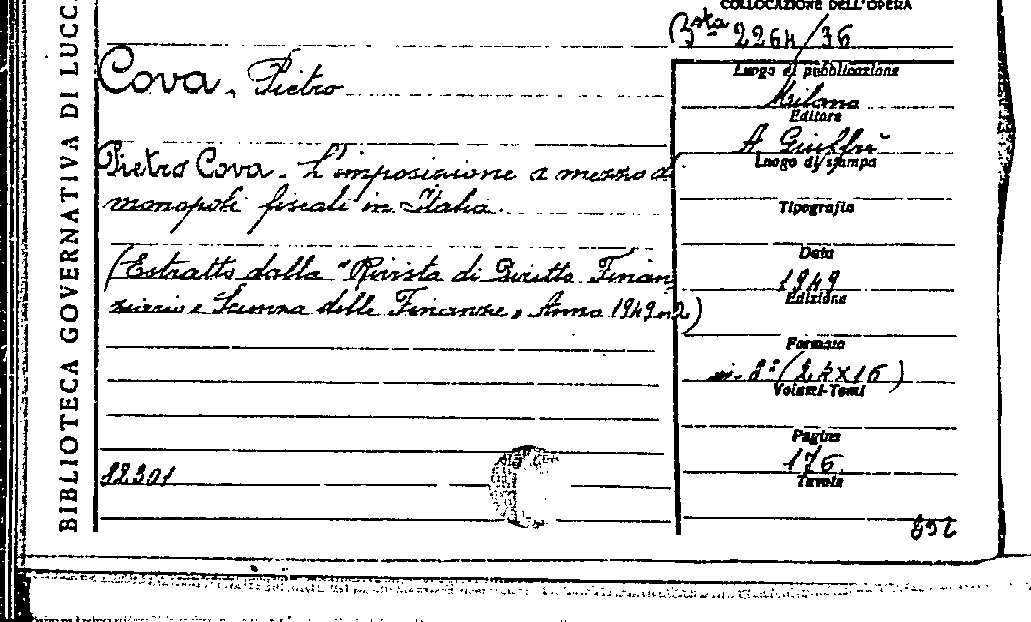 BIBLIOTECA GOVERNATIVA DI LUCCA
COLLOCAZIONE DELL'OPERA
Bsta 2264/36
Cova, Pietro
Pietro Cova. L'imposizione a mezzo di
monopoli fiscali in Italia.
(Estratto dalla "Rivista di Diritto Finan
ziario e Scienza delle Finanze, Anno 1949 n2)
12301
Luogo di pubblicazione
Milano
Editore
A. Giuffrè
Luogo di stampa
Tipografia
Data
1949
Edizione
Formato
in-8° (24x16)
Volumi-Tomi
Pagine
176
Tavole